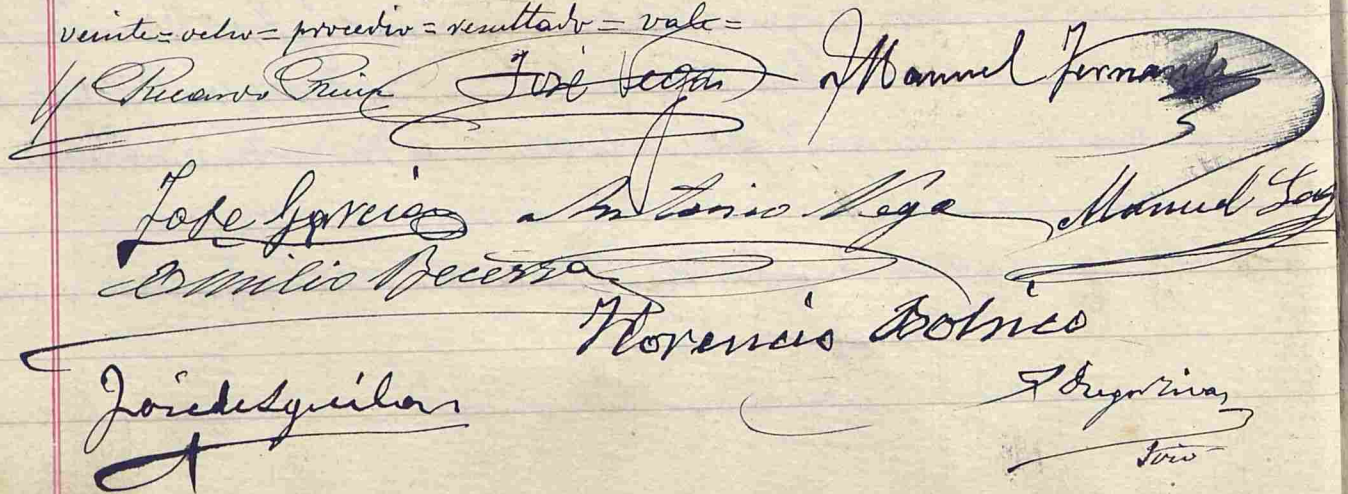 veinte = ocho = procedio = resultado = vale =
Ricardo José Vega Manuel Fernandez
José Garcia Antonio Vega Manuel
Emilio Becerra
Florencio
José de Aguilar
Srio